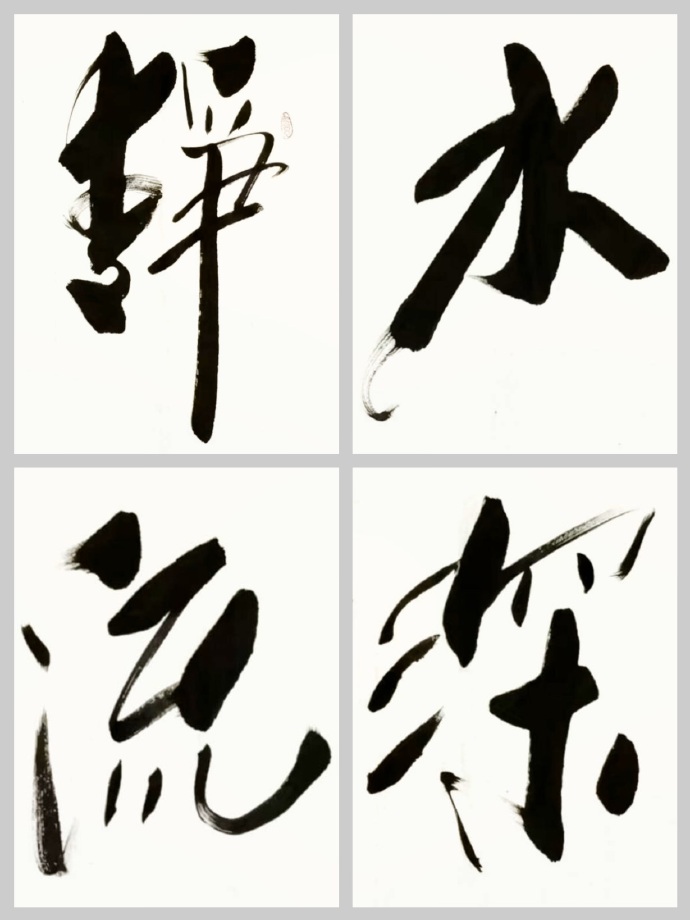 靜水
流深